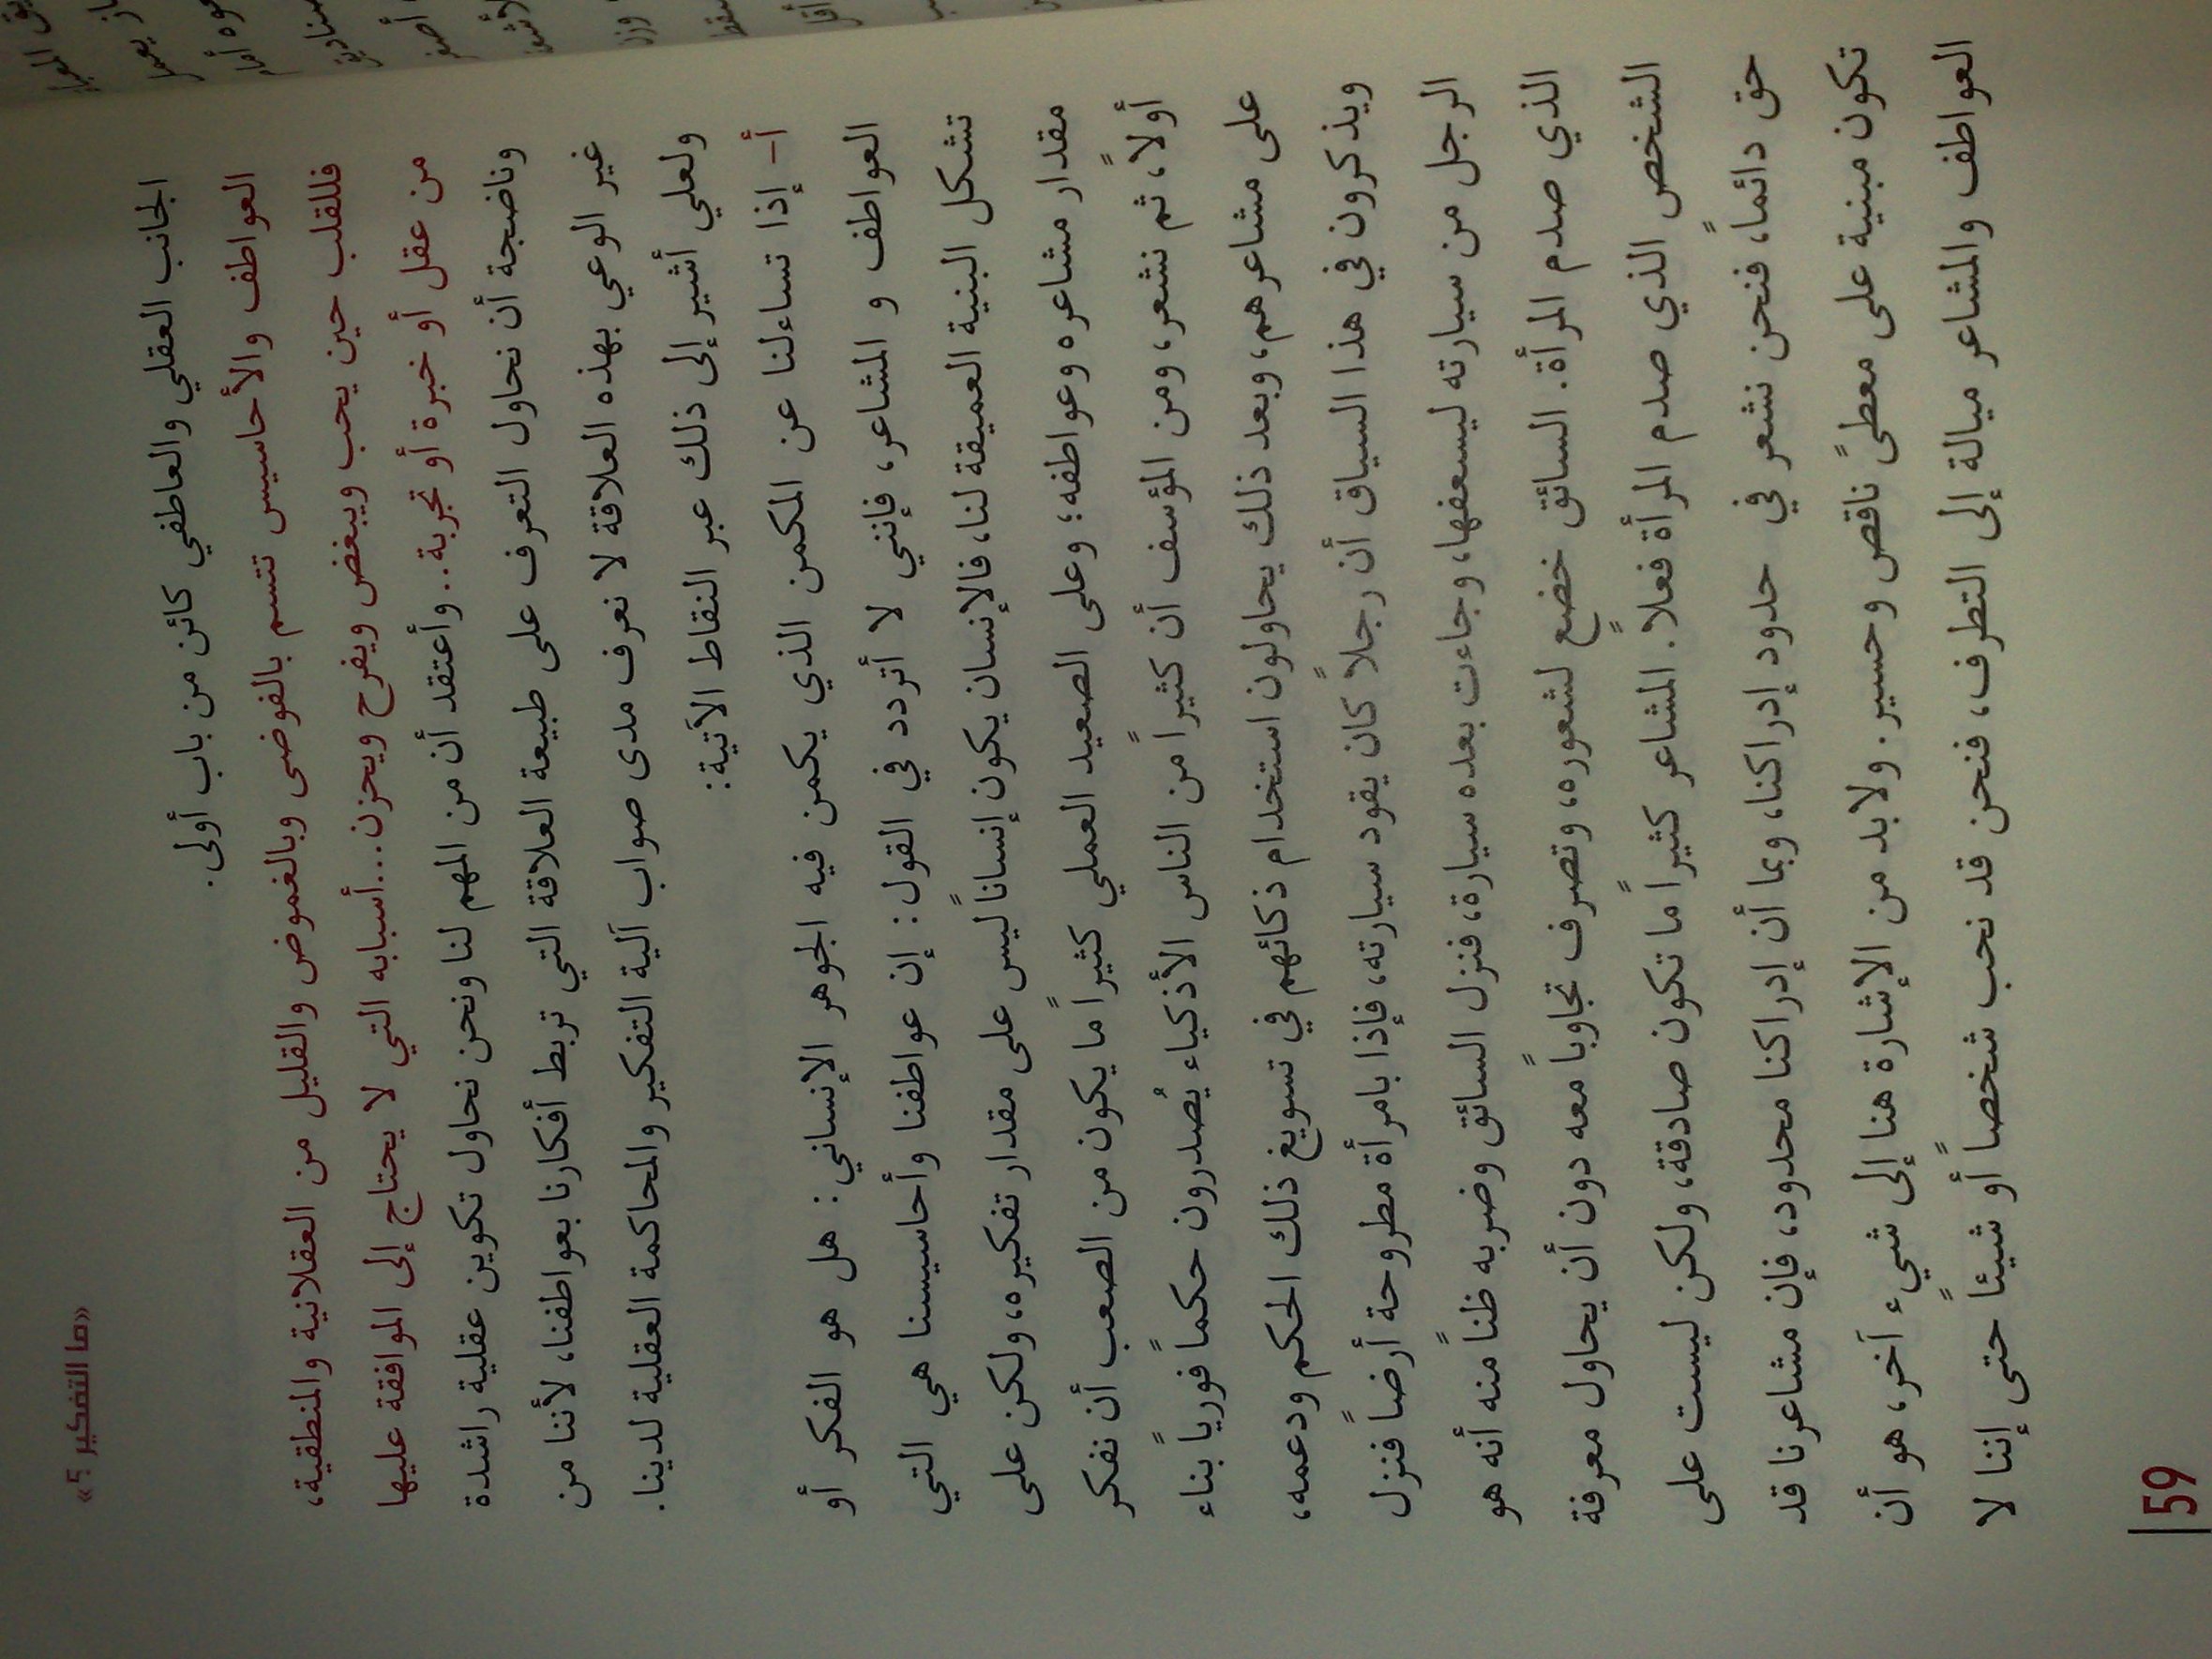 «ما التفكير ؟»
الجانب العقلي والعاطفي كائن من باب أولى.
العواطف والأحاسيس تتسم بالفوضى وبالغموض والقليل من العقلانية والمنطقية،
فللقلب حين يحب ويبغض ويفرح ويحزن...أسبابه التي لا يحتاج إلى الموافقة عليها
من عقل أو خبرة أو تجربة.. وأعتقد أن من المهم لنا ونحن نحاول تكوين عقلية راشدة
وناضجة أن نحاول التعرف على طبيعة العلاقة التي تربط أفكارنا بعواطفنا، لأننا من
غير الوعي بهذه العلاقة لا نعرف مدى صواب آلية التفكير والمحاكمة العقلية لدينا.
ولعلي أشير إلى ذلك عبر النقاط الآتية:
أ- إذا تساءلنا عن المكمن الذي يكمن فيه الجوهر الإنساني: هل هو الفكر أو
العواطف و المشاعر، فإنني لا أتردد في القول: إن عواطفنا وأحاسيسنا هي التي
تشكل البنية العميقة لنا، فالإنسان يكون إنساناً ليس على مقدار تفكيره، ولكن على
مقدار مشاعره وعواطفه؛ وعلى الصعيد العملي كثيراً ما يكون من الصعب أن نفكر
أولاً، ثم نشعر، ومن المؤسف أن كثيراً من الناس الأذكياء يُصدرون حكماً فورياً بناء
على مشاعرهم، وبعد ذلك يحاولون استخدام ذكائهم في تسويغ ذلك الحكم ودعمه،
ويذكرون في هذا السياق أن رجلاً كان يقود سيارته، فإذا بامرأة مطروحة أرضاً فنزل
الرجل من سيارته ليسعفها، وجاءت بعده سيارة، فنزل السائق وضربه ظناً منه أنه هو
الذي صدم المرأة. السائق خضع لشعوره، وتصرف تجاوباً معه دون أن يحاول معرفة
الشخص الذي صدم المرأة فعلاً. المشاعر كثيراً ما تكون صادقة، ولكن ليست على
حق دائماً، فنحن نشعر في حدود إدراكنا، وبما أن إدراكنا محدود، فإن مشاعرنا قد
تكون مبنية على معطىً ناقص وحسير. ولابد من الإشارة هنا إلى شيء آخر، هو أن
العواطف والمشاعر ميالة إلى التطرف، فنحن قد نحب شخصاً أو شيئاً حتى إننا لا
59